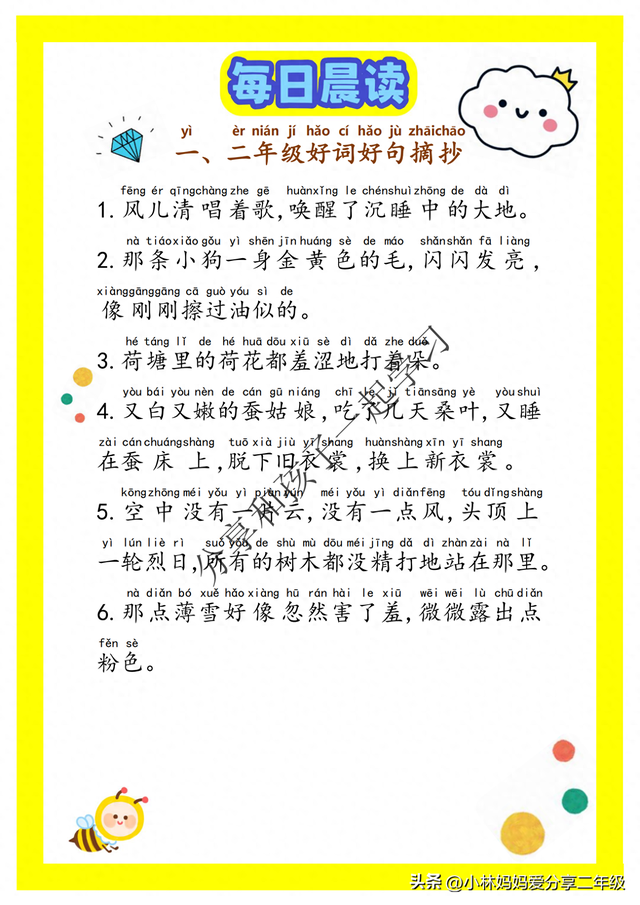 每日晨读
yì èr nián jí hǎo cí hǎo jù zhāichāo
一、二年级好词好句摘抄
fēng ér qīngchàng zhe gē huànxǐng le chénshuìzhōng de dà dì
1. 风儿清唱着歌,唤醒了沉睡中的大地。
nà tiáoxiǎogǒu yì shēn jīn huáng sè de máo shǎnshǎn fā liàng
2. 那条小狗一身金黄色的毛,闪闪发亮,
xiànggānggāng cā guò yóu sì de
像刚刚擦过油似的。
hé táng lǐ de hé huā dōu xiū sè dì dǎ zhe duǒ
3. 荷塘里的荷花都羞涩地打着朵。
yòu bái yòu nèn de cán gū niáng chī le jǐ tiānsāng yè yòu shuì
4. 又白又嫩的蚕姑娘,吃了几天桑叶,又睡
zài cán chuángshàng tuō xià jiù yī shang huànshàng xīn yī shang
在蚕床上,脱下旧衣裳,换上新衣裳。
kōng zhōng méi yǒu yī piàn yún méi yǒu yì diǎnfēng tóu dǐng shàng
5. 空中没有一片云,没有一点风,头顶上
yì lún liè rì suǒ yǒu de shù mù dōu méi jīng dǎ dì zhàn zài nà lǐ
一轮烈日,所有的树木都没精打地站在那里。
nà diǎn bó xuě hǎo xiàng hū rán hài le xiū wēi wēi lù chū diǎn
6. 那点薄雪好像忽然害了羞,微微露出点
fěn sè
粉色。
分享和孩子一起学习
头条 @小林妈妈爱分享二年级